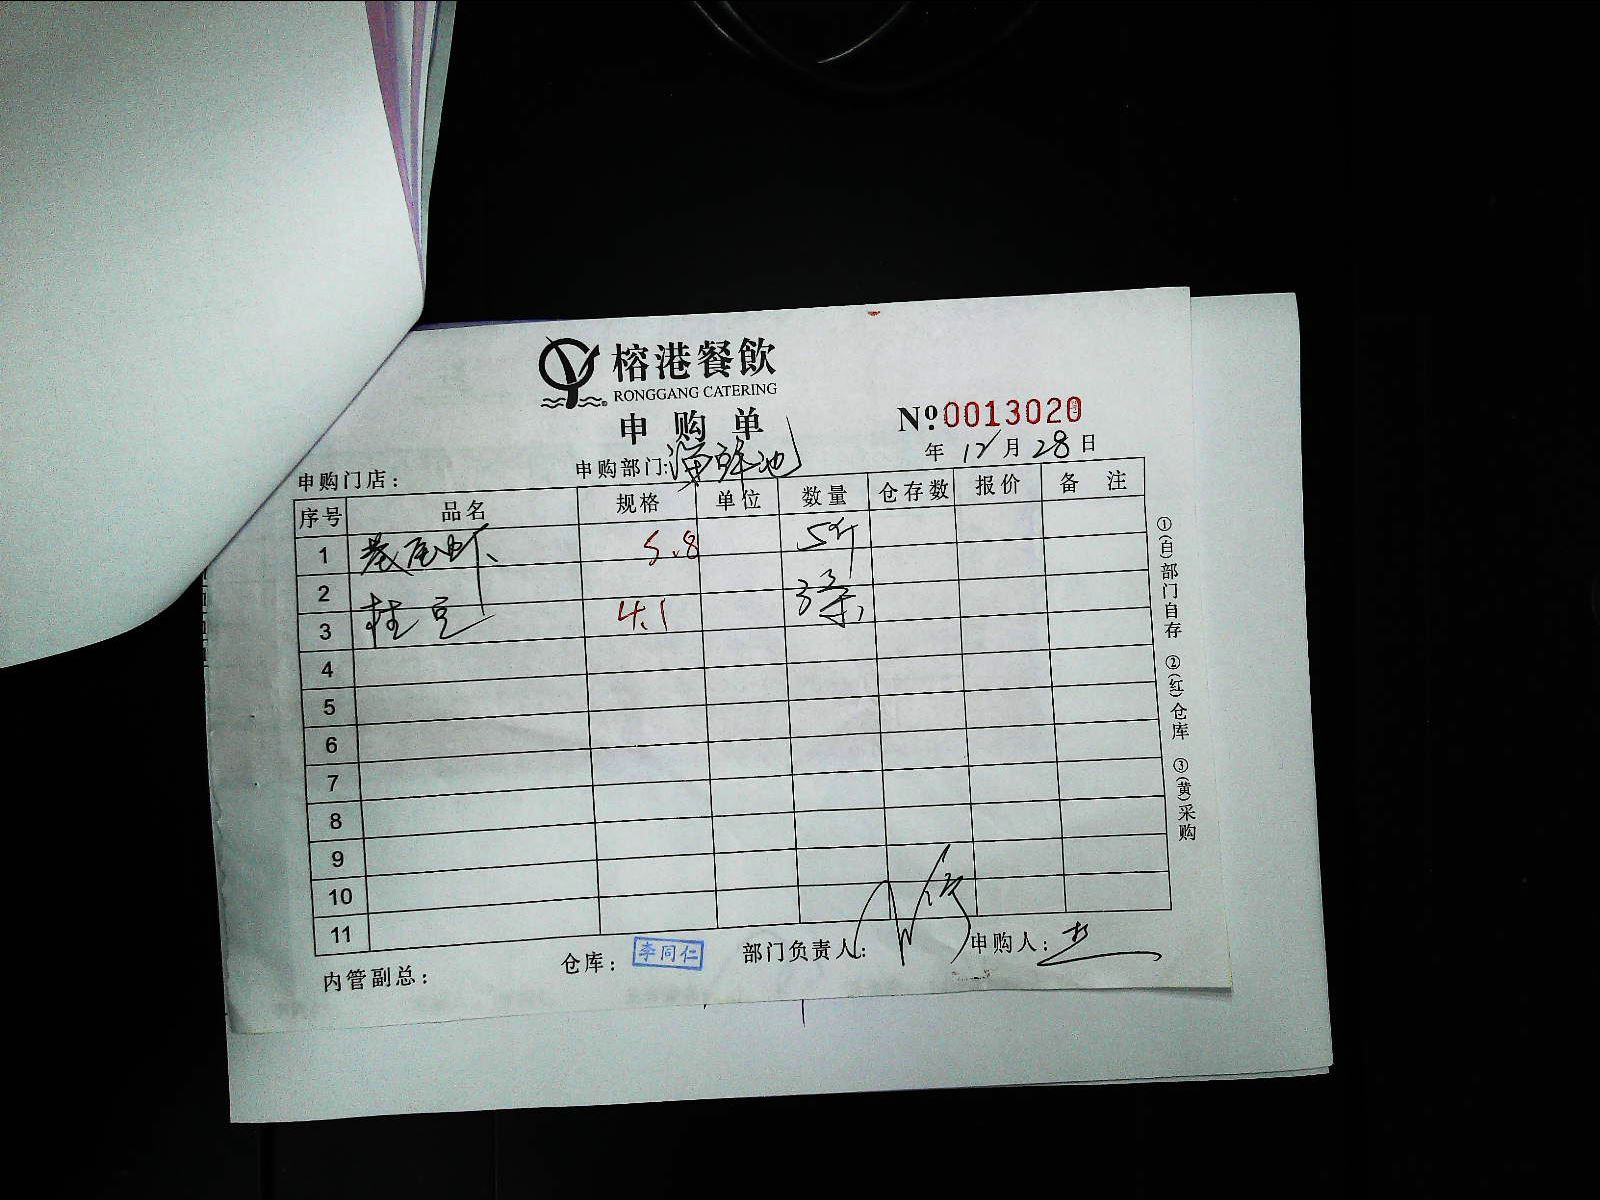 榕港餐飲
RONGGANG CATERING
申购单
Nº:0013020
年 12 月 28 日
申购门店: 申购部门:海鲜池
序号 品名 规格 单位 数量 仓存数 报价 备注
1 尾虾 5.8 5斤
2
3 桂 4.1 3条
4
5
6
7
8
9
10
11
内管副总: 仓库: 李同仁 部门负责人: 申购人:
①(白)部门自存 ②(红)仓库 ③(黄)采购